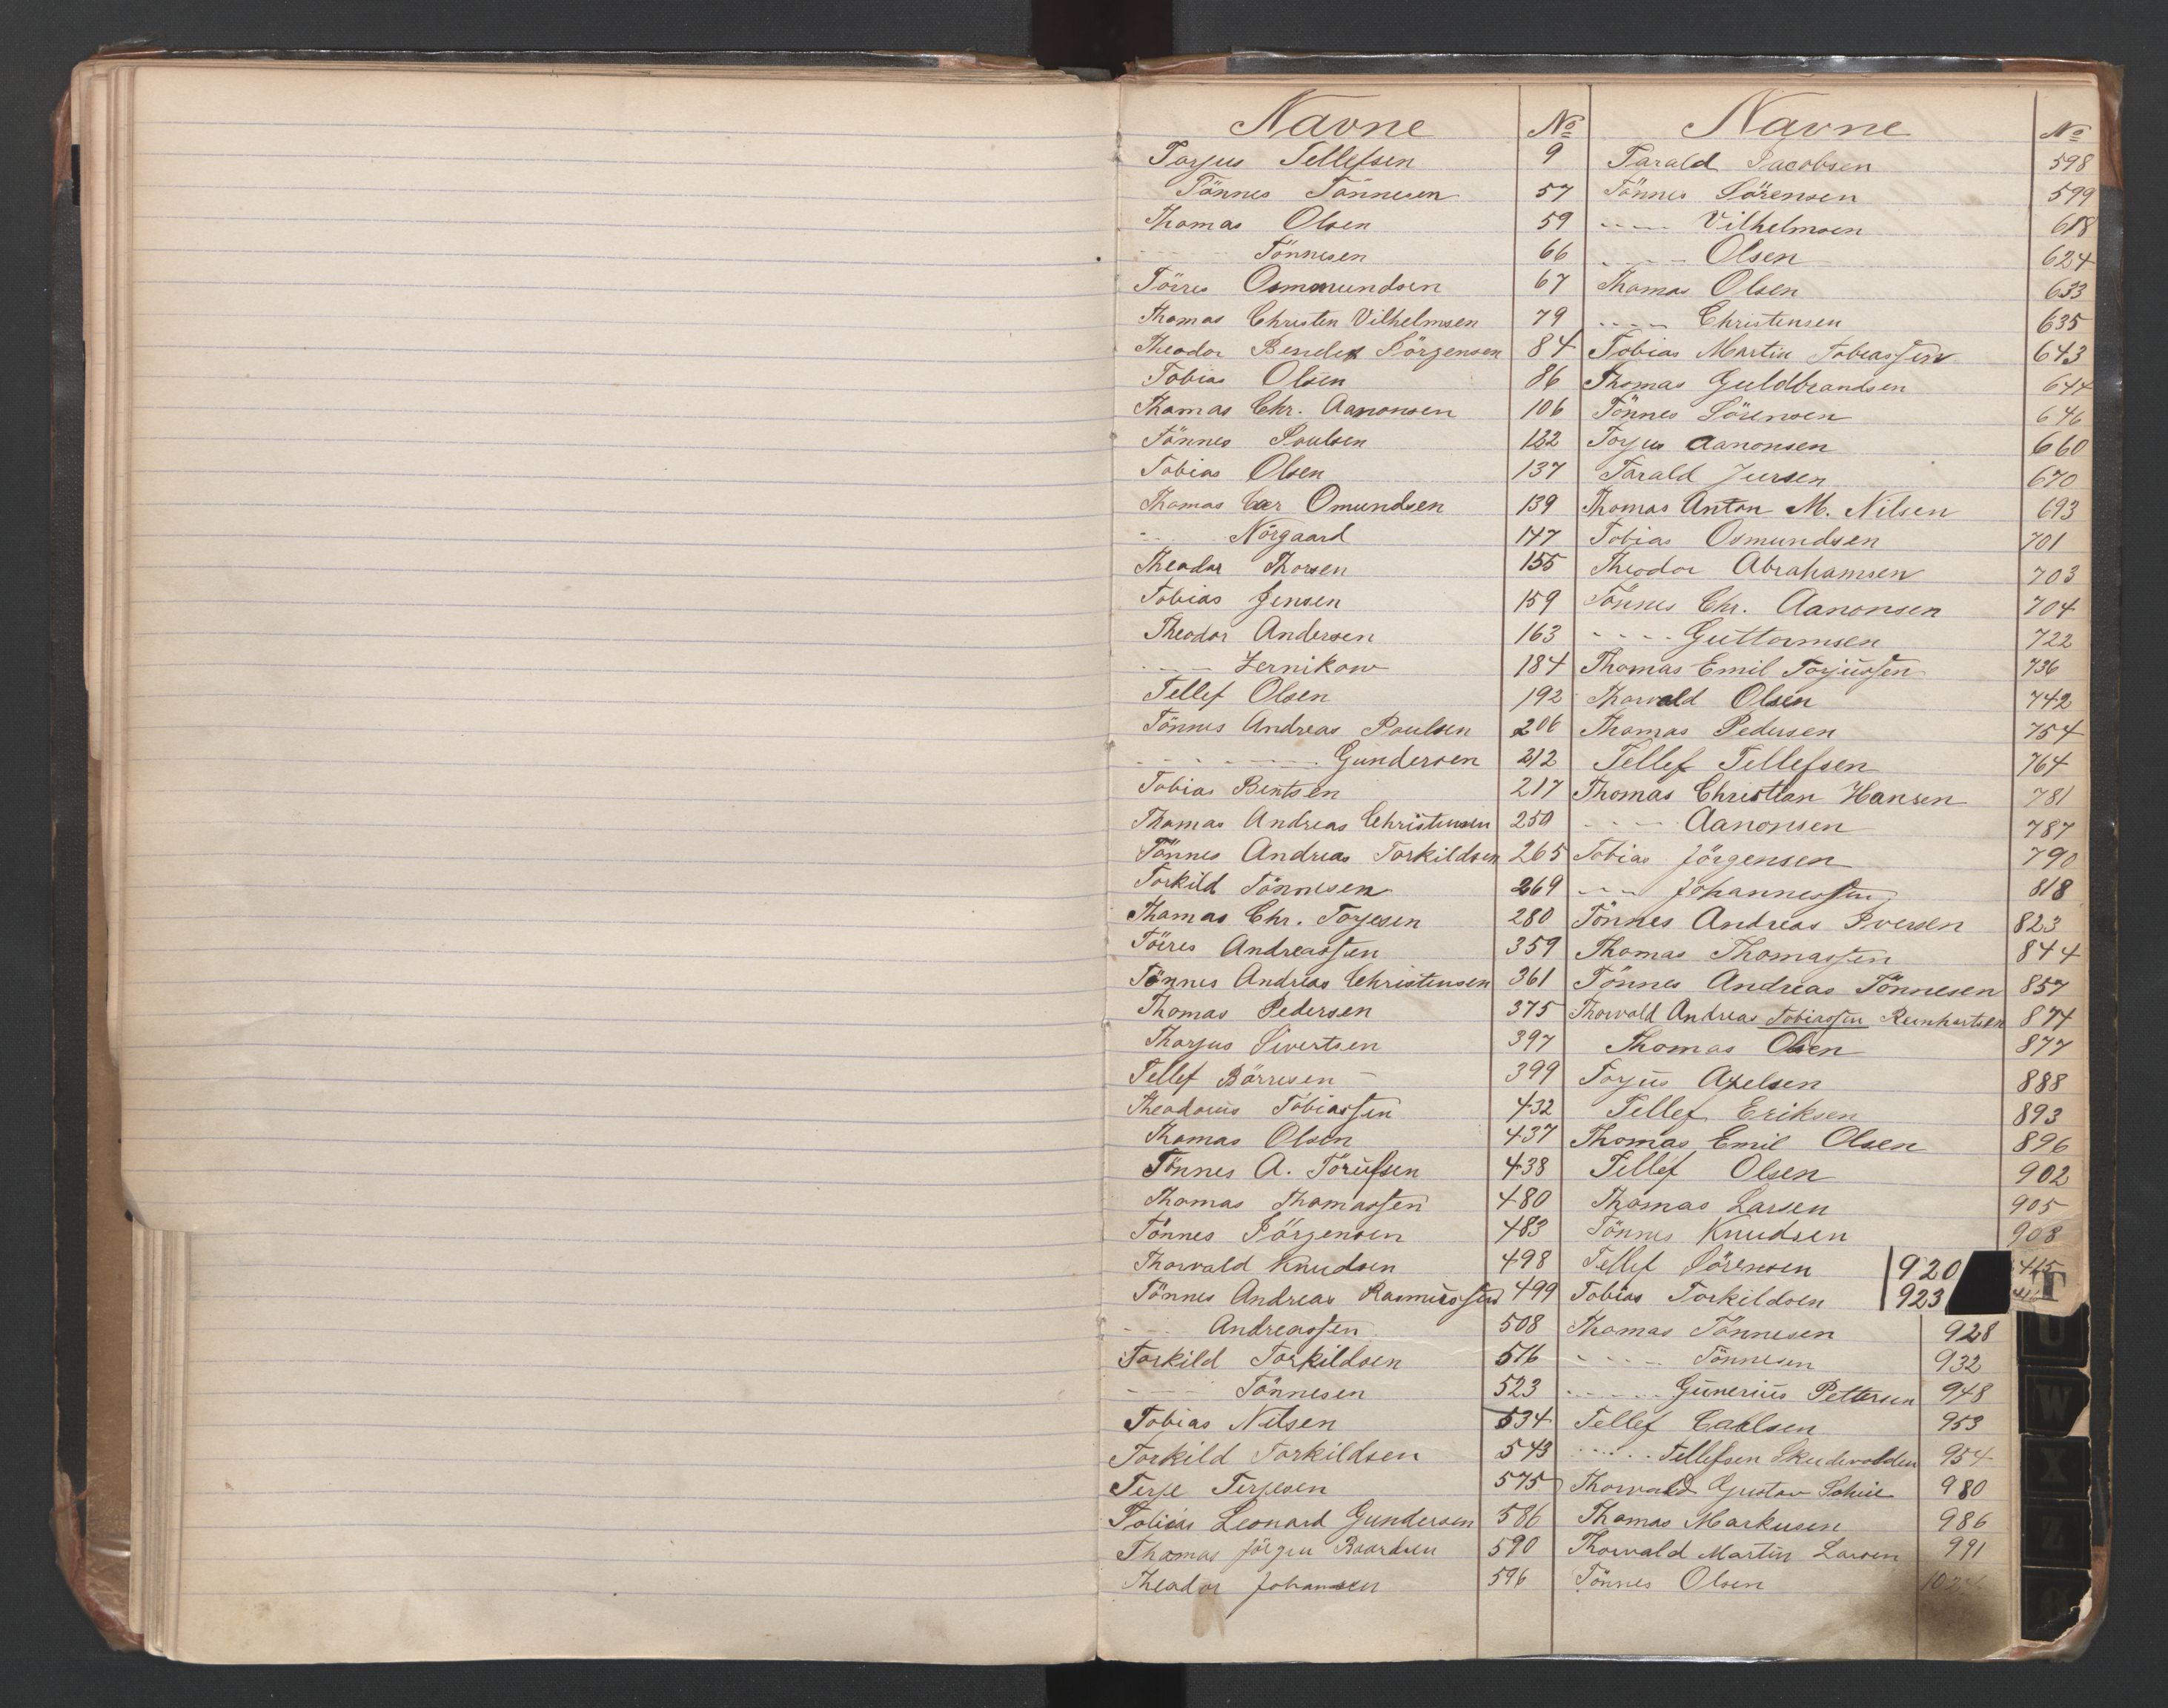 Navne № Navne №
Torjus Tellefsen 9 Tarald Jacobsen 598
Tönnes Tönnesen 57 Tönnes Sörensen 599
Thomas Olsen 59 ---- Vilhelmsen 618
---- Tönnesen 66 ---- Olsen 624
Törres Osmundsen 67 Thomas Olsen 633
Thomas Christen Vilhelmsen 79 ---- Christensen 635
Theodor Bendix Jörgensen 84 Tobias Martin Tobiassen 643
Tobias Olsen 86 Thomas Guldbrandsen 644
Thomas Chr. Aanonsen 106 Tönnes Sörensen 646
Tönnes Poulsen 122 Torjus Aanonsen 660
Tobias Olsen 137 Tarald Iversen 670
Thomas Omundsen 139 Thomas Anton M. Nilsen 693
--- Nörgaard 147 Tobias Osmundsen 701
Theodor Thorsen 155 Theodor Abrahamsen 703
Tobias Jensen 159 Tönnes Chr. Aanonsen 704
Theodor Andersen 163 ---- Guttormsen 722
---- Zernikow 184 Thomas Emil Torjussen 736
Tellef Olsen 192 Thorvald Olsen 742
Tönnes Andreas Poulsen 206 Thomas Pedersen 754
------- Gundersen 212 Tellef Tellefsen 764
Tobias Bentsen 217 Thomas Christian Hansen 781
Thomas Andreas Christensen 250 ---- Aanonsen 787
Tönnes Andreas Torkildsen 265 Tobias Jörgensen 790
Torkild Tönnesen 269 --- Johannessen 818
Thomas Chr. Torjesen 280 Tönnes Andreas Iversen 823
Törres Andreassen 359 Thomas Thomassen 844
Tönnes Andreas Christensen 361 Tönnes Andreas Tönnesen 857
Thomas Pedersen 375 Thorvald Andreas Tobiassen Reinhartsen 874
Thorjus Sivertsen 397 Thomas Olsen 877
Tellef Börresen - 399 Torjus Axelsen 888
Theodorius Tobiassen 432 Tellef Eriksen 893
Thomas Olsen 437 Thomas Emil Olsen 896
Tönnes A. 438 Tellef Olsen 902
Thomas Thomassen 480 Thomas Larsen 905
Tönnes Jörgensen 483 Tönnes Knudsen 908
Thorvald Knudsen 498 Tellef Sörensen 920
Tönnes Andreas Rasmussen 499 Tobias Torkildsen 923 T
--- Andreassen 508 Thomas Tönnesen 928 U
Torkild Torkildsen 516 ---- Tönnesen 932
---- Tönnesen 523 ---- Gunerius Pettersen 948
Tobias Nilsen 534 Tellef Carlsen 953 W
Torkild Torkildsen 543 ---- Tellefsen Skudevolden 954
Terje Terjesen 575 Thorvald Gustav 980 X
Tobias Leonard Gundersen 586 Thomas Markusen 986
Thomas Jörgen Baardsen 590 Thorvald Martin Larsen 991
Theodor Johansen 596 Tönnes Olsen